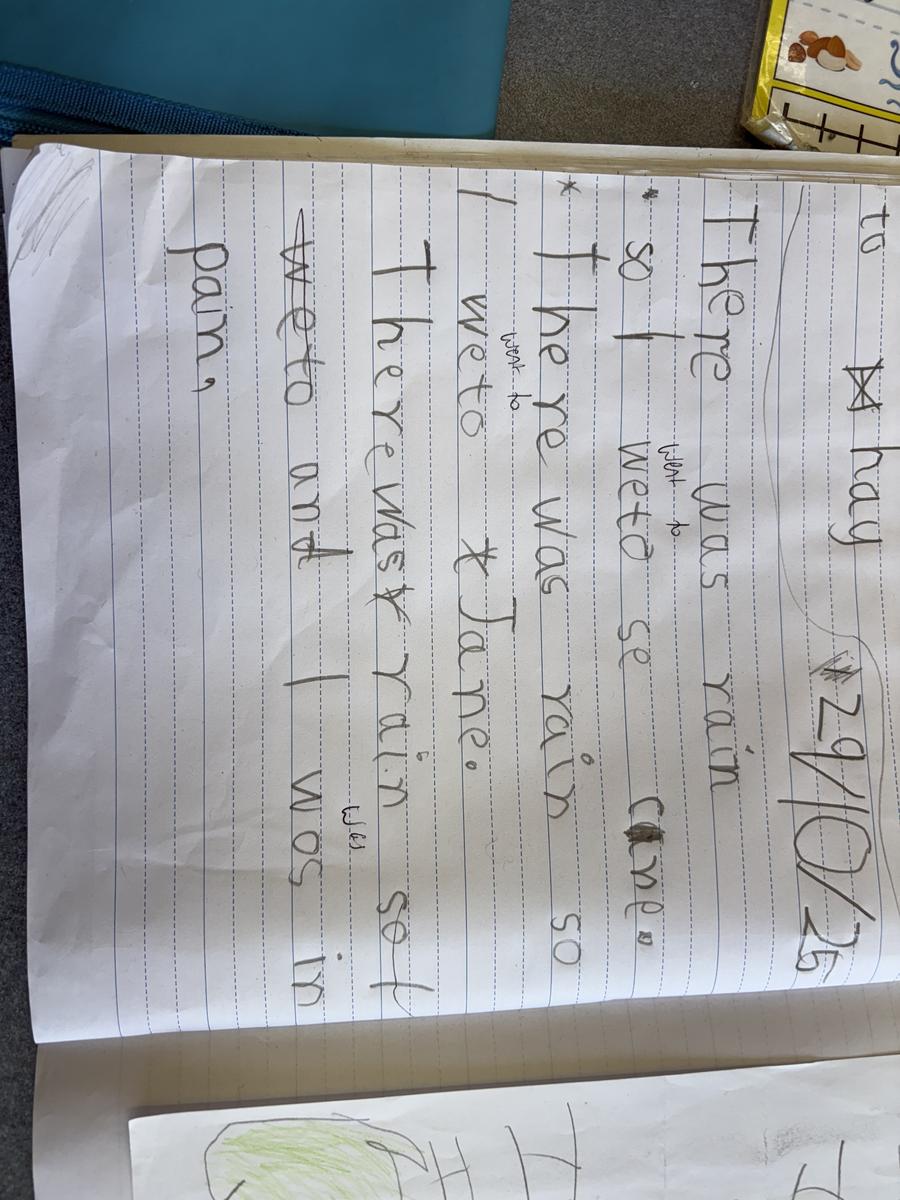 to hay
29/10/25
There was rain
went to
so I weto se cane.
There was rain so
went to
I weto Jane.
There was rain so I
was
weto and I wos in
pain,